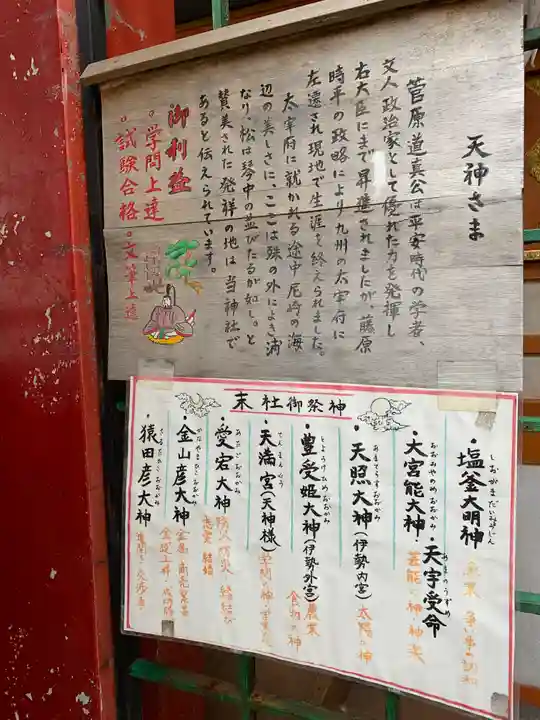 天神さま
菅原道真公は平安時代の学者、
文人政治家として優れた力を発揮し
右大臣にまで昇進されましたが、藤原
時平の政略により九州の太宰府に
左遷され現地で生涯を終えられました。
太宰府に就かれる途中尼崎の海
辺の美しさに、ここは殊の外によき浦
なり、松は琴中の並びたるが如し。と
賛美された発祥の地は当神社で
あると伝えられています。
御利益
○学問上達
○試験合格○文筆上達
末社御祭神
・塩釜大明神
しおがまだいみょうじん
・大宮能大神・天宇受命
おおみやのめおおかみ
あめのうずめ
芸能の神・神楽
・天照大神(伊勢内宮)
あまてらすおおかみ
太陽の神
・豊受姫大神(伊勢外宮)
とようけひめおおかみ
農業
食物の神
・天満宮(天神様)
てんまんぐう
学問の神
・愛宕大神
あたごおおかみ
防火 防災 縁結び
・金山彦大神
かなやまひこおおかみ
・猿田彦大神
さるたひこおおかみ